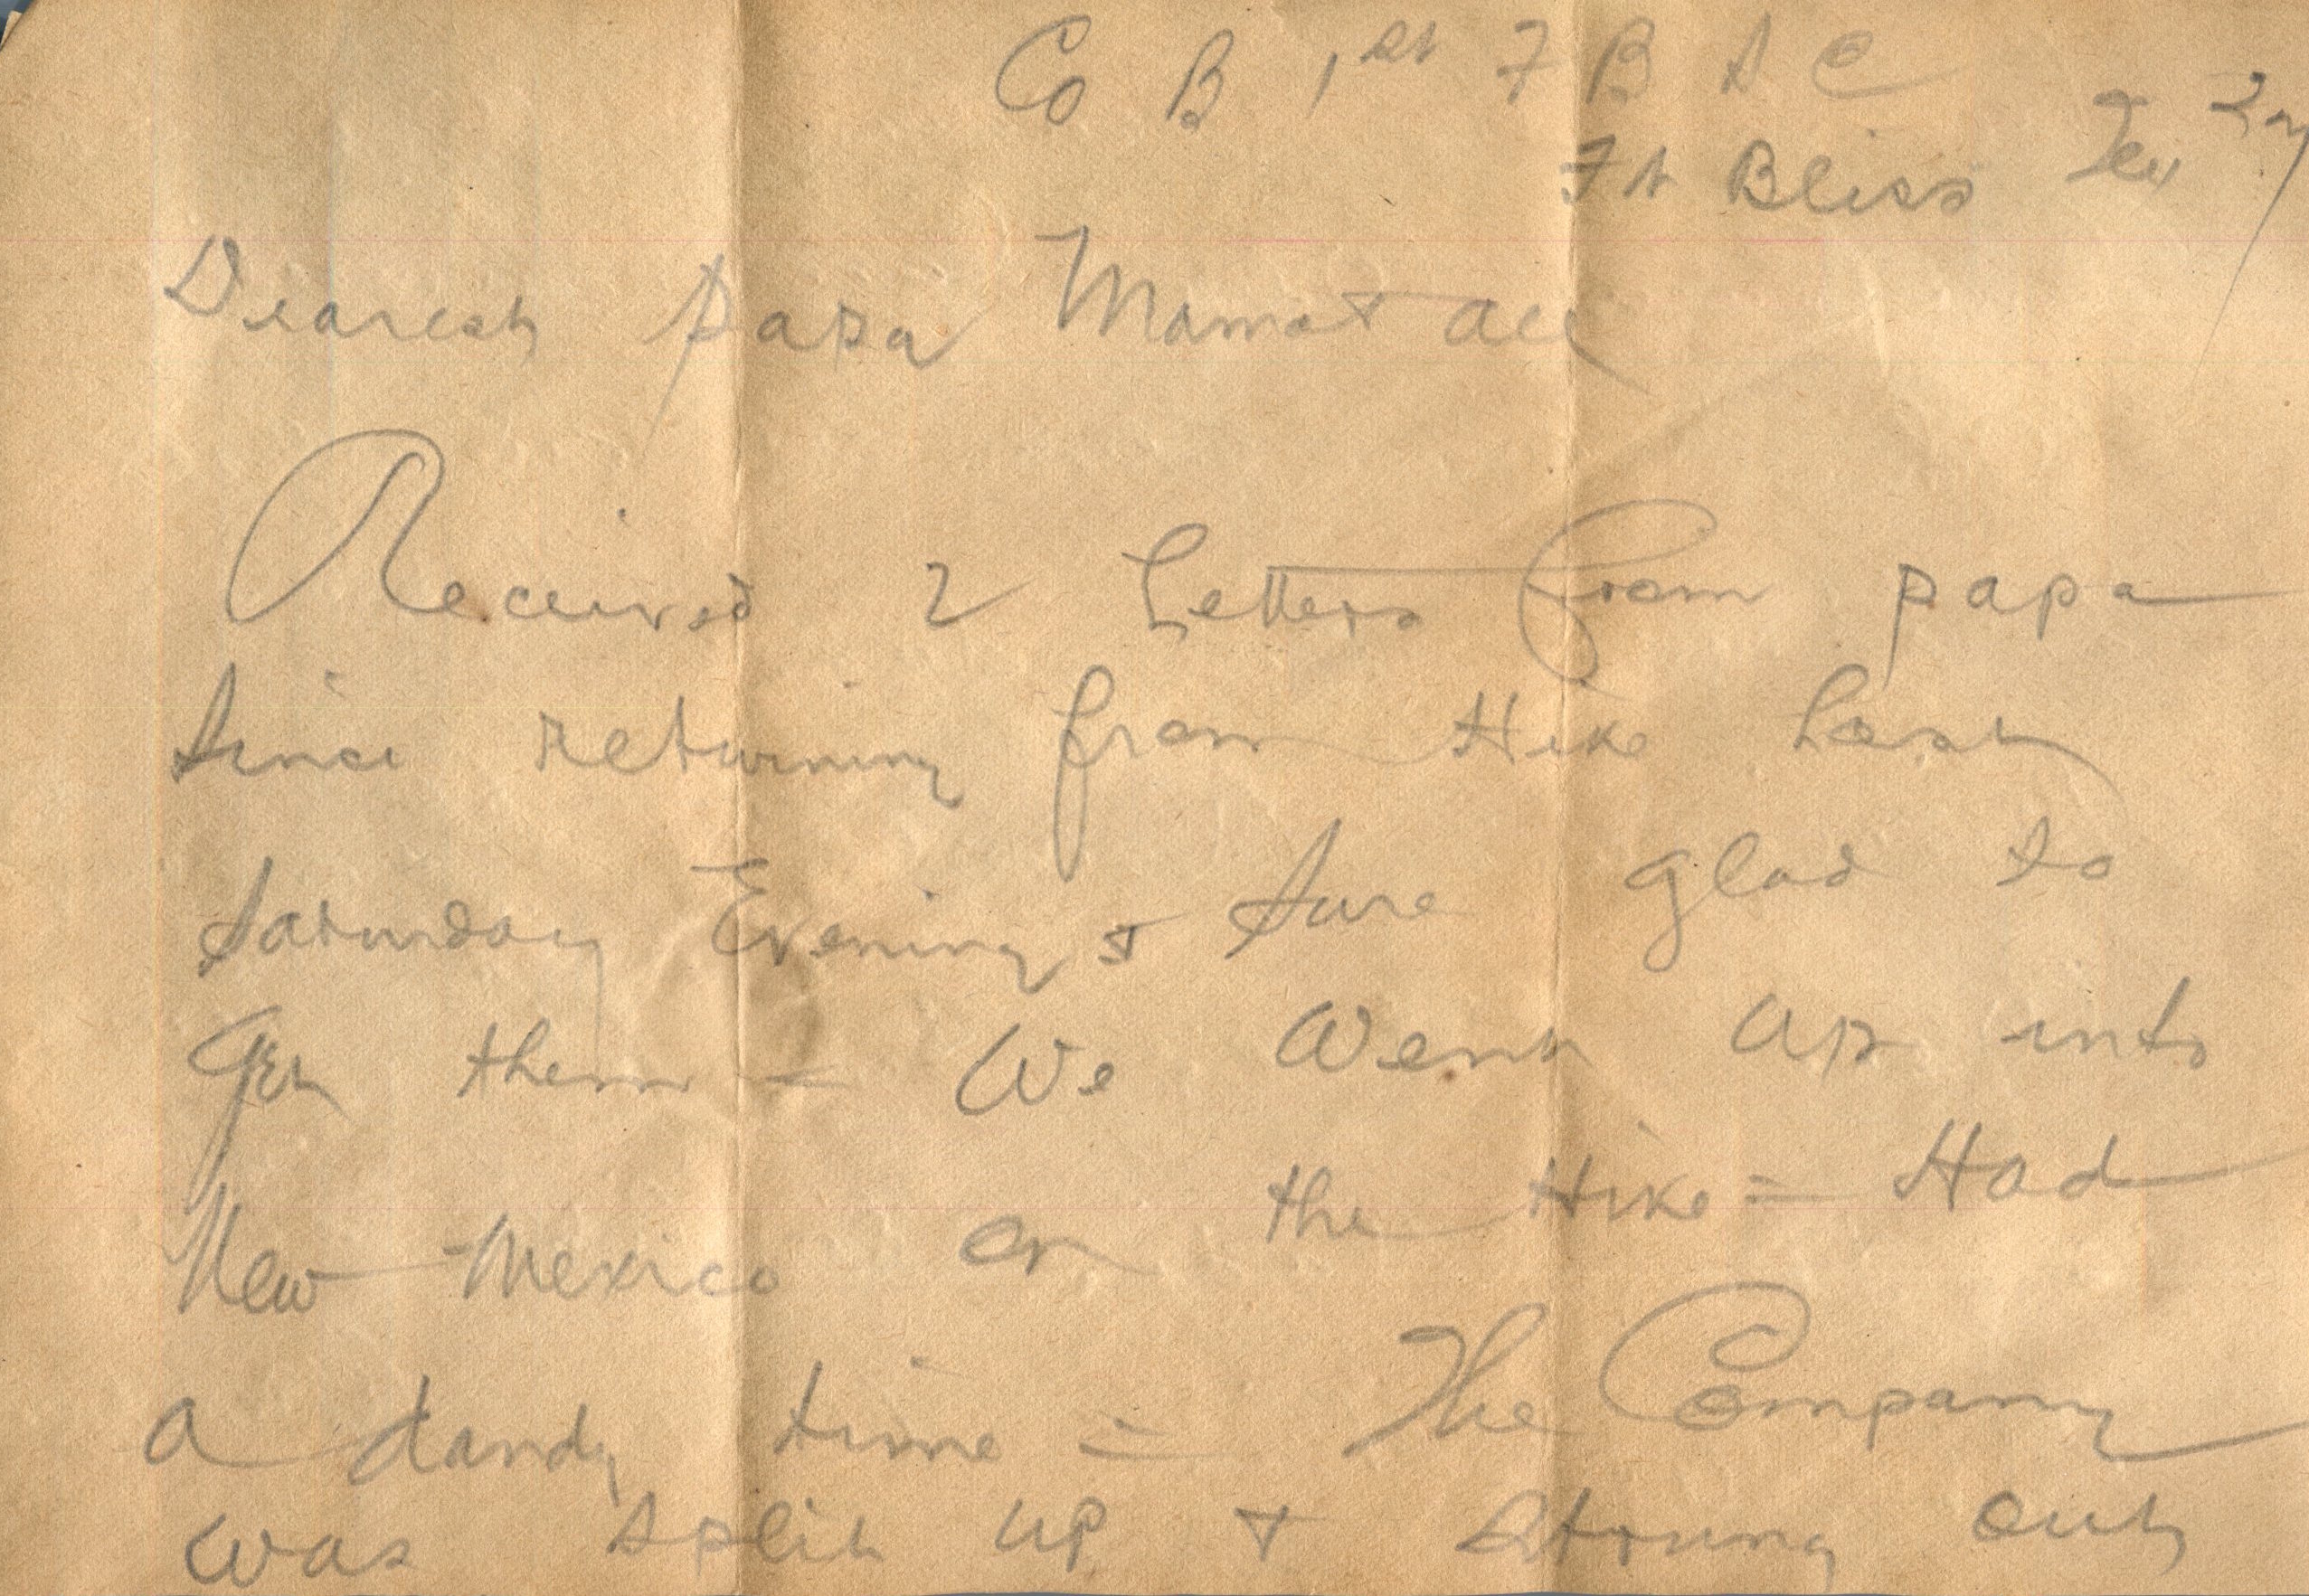 Co B 1st F B S C
Ft Bliss Tex
Dearest papa Mama + all
Received 2 Letters from papa
Since returning from Hike Last
Saturday Evening + Sure glad to
get them = We Went up into
New Mexico on the Hike = Had
a dandy time = The Company
was split up + strung out